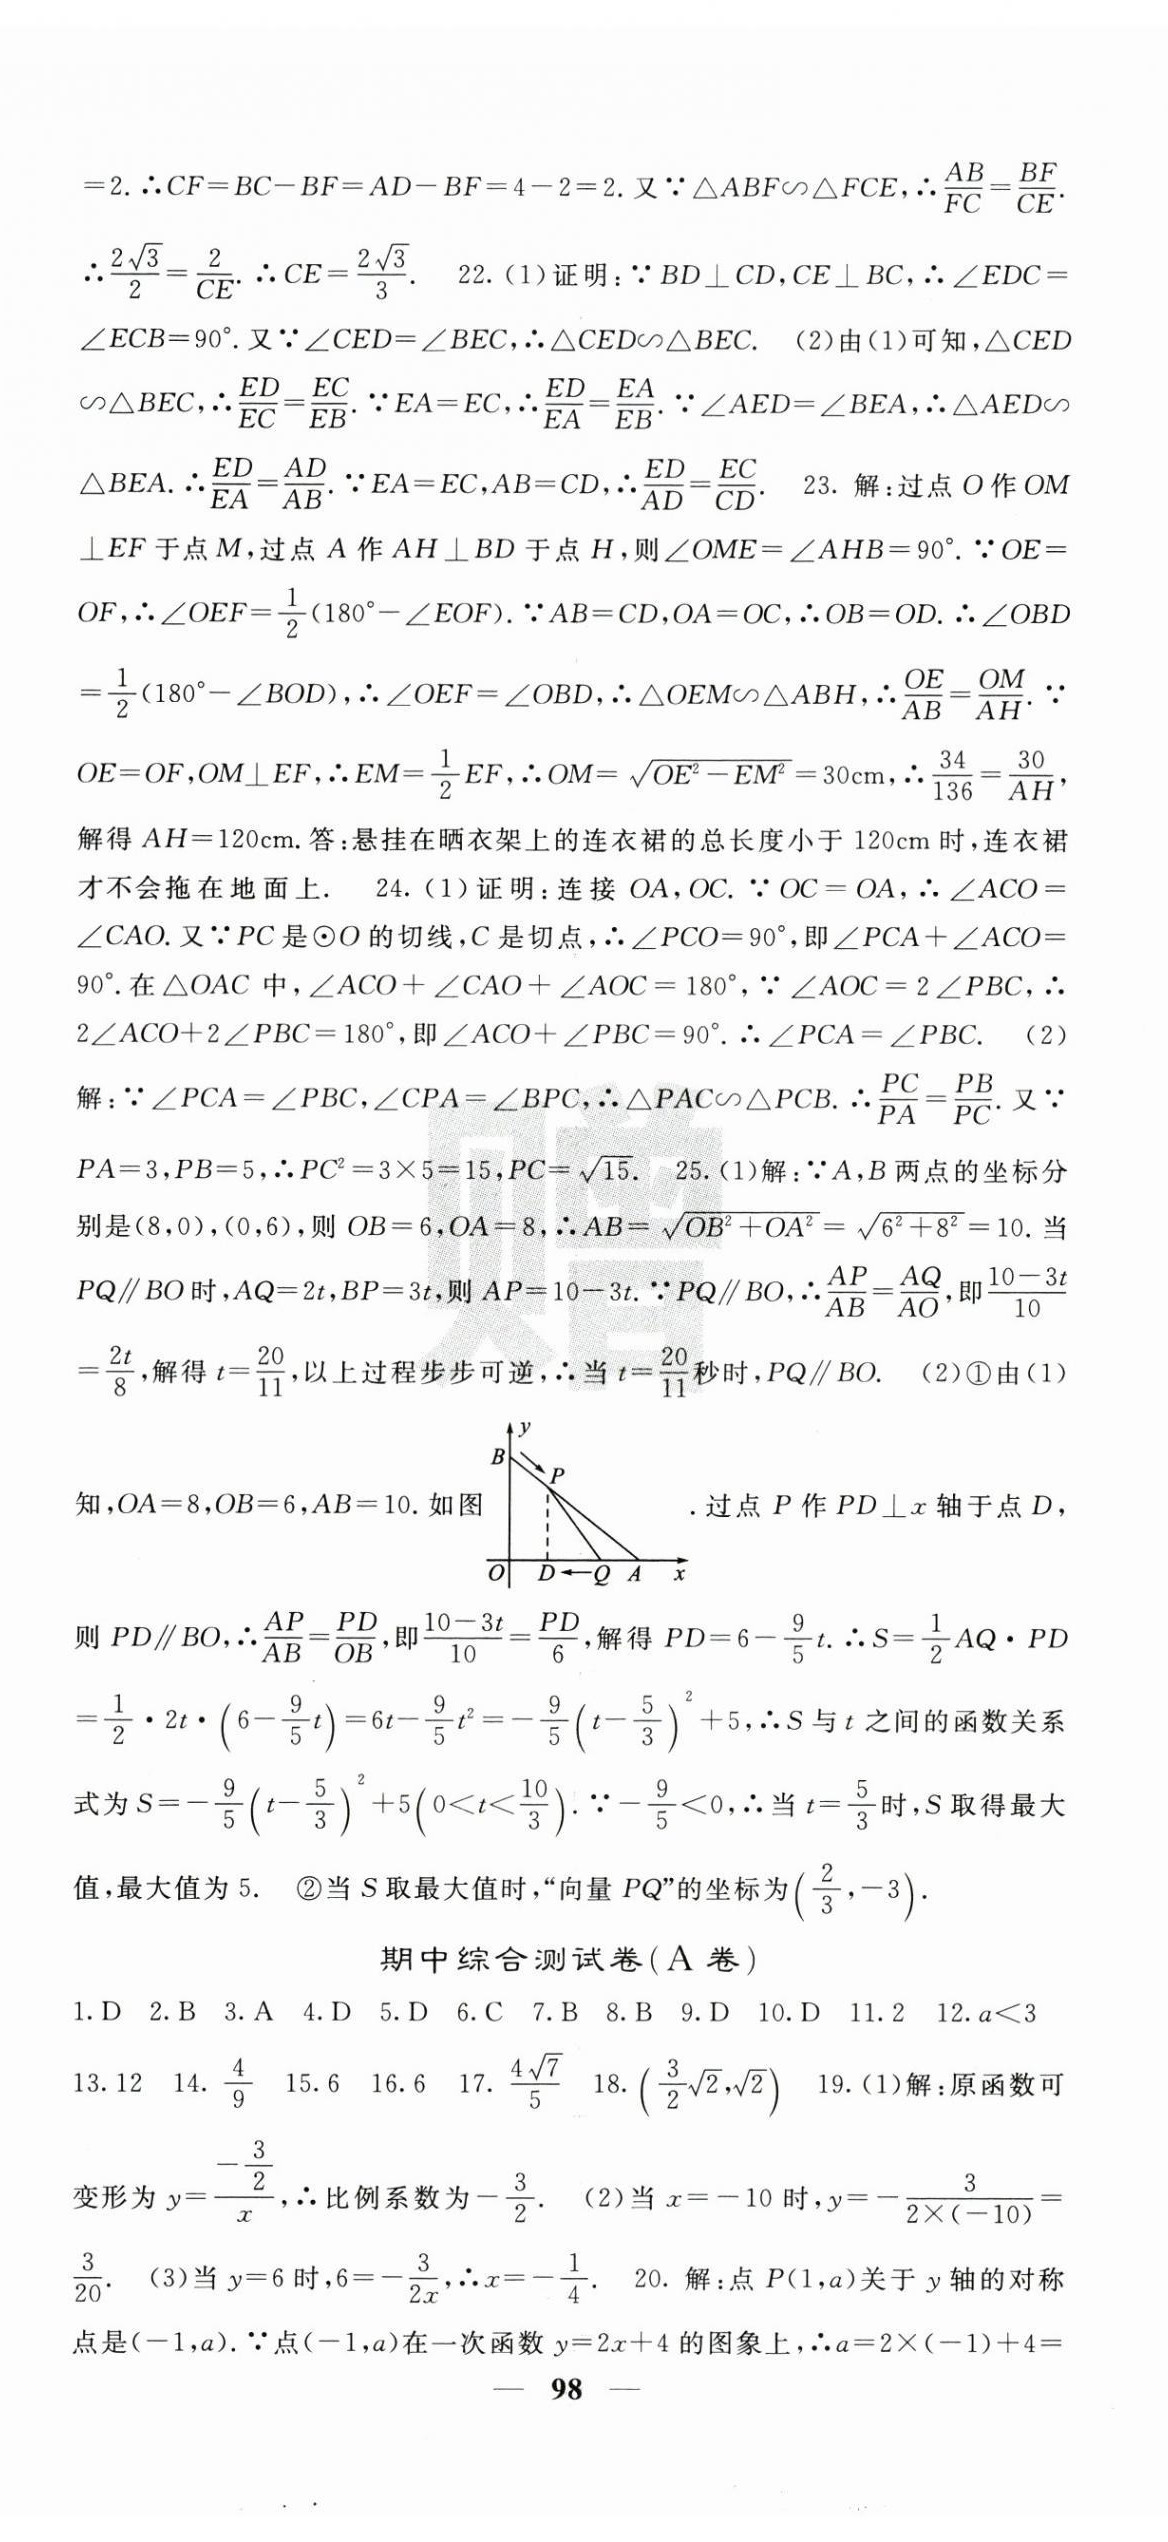 =2.∴CF=BC-BF=AD-BF=4-2=2.又∵△ABF∽△FCE,∴AB/FC=BF/CE.
∴2√3/2=2/CE.∴CE=2√3/3. 22.(1)证明:∵BD⊥CD,CE⊥BC,∴∠EDC=
∠ECB=90°.又∵∠CED=∠BEC,∴△CED∽△BEC. (2)由(1)可知,△CED
∽△BEC,∴ED/EC=EC/EB.∵EA=EC,∴ED/EA=EA/EB.∵∠AED=∠BEA,∴△AED∽
△BEA.∴ED/EA=AD/AB.∵EA=EC,AB=CD,∴ED/AD=EC/CD. 23. 解:过点O作OM
⊥EF于点M,过点A作AH⊥BD于点H,则∠OME=∠AHB=90°.∵OE=
OF,∴∠OEF=1/2(180°-∠EOF).∵AB=CD,OA=OC,∴OB=OD.∴∠OBD
=1/2(180°-∠BOD),∴∠OEF=∠OBD,∴△OEM∽△ABH,∴OE/AB=OM/AH.∵
OE=OF,OM⊥EF,∴EM=1/2EF,∴OM=√(OE²-EM²)=30cm,∴34/136=30/AH,
解得AH=120cm.答:悬挂在晒衣架上的连衣裙的总长度小于120cm时,连衣裙
才不会拖在地面上. 24.(1)证明:连接OA,OC.∵OC=OA,∴∠ACO=
∠CAO.又∵PC是⊙O的切线,C是切点,∴∠PCO=90°,即∠PCA+∠ACO=
90°.在△OAC中,∠ACO+∠CAO+∠AOC=180°,∵∠AOC=2∠PBC,∴
2∠ACO+2∠PBC=180°,即∠ACO+∠PBC=90°.∴∠PCA=∠PBC. (2)
解:∵∠PCA=∠PBC,∠CPA=∠BPC,∴△PAC∽△PCB.∴PC/PA=PB/PC.又∵
PA=3,PB=5,∴PC²=3×5=15,PC=√15. 25.(1)解:∵A,B两点的坐标分
别是(8,0),(0,6),则OB=6,OA=8,∴AB=√(OB²+OA²)=√(6²+8²)=10.当
PQ∥BO时,AQ=2t,BP=3t,则AP=10-3t.∵PQ∥BO,∴AP/AB=AQ/AO,即(10-3t)/10
=2t/8,解得t=20/11,以上过程步步可逆,∴当t=20/11秒时,PQ∥BO. (2)①由(1)
y
B
P
知,OA=8,OB=6,AB=10.如图 .过点P作PD⊥x轴于点D,
O D Q A x
则PD∥BO,∴AP/AB=PD/OB,即(10-3t)/10=PD/6,解得PD=6-9/5t.∴S=1/2AQ·PD
=1/2·2t·(6-9/5t)=6t-9/5t²=-9/5(t-5/3)²+5,∴S与t之间的函数关系
式为S=-9/5(t-5/3)²+5(0<t<10/3).∵-9/5<0,∴当t=5/3时,S取得最大
值,最大值为5. ②当S取最大值时,“向量PQ”的坐标为(2/3,-3).
期中综合测试卷(A卷)
1.D 2.B 3.A 4.D 5.D 6.C 7.B 8.B 9.D 10.D 11.2 12.a<3
13.12 14.4/9 15.6 16.6 17.4√7/5 18.(3/2√2,√2) 19.(1)解:原函数可
变形为y=(-3/2)/x,∴比例系数为-3/2. (2)当x=-10时,y=-3/(2×(-10))=
3/20. (3)当y=6时,6=-3/2x,∴x=-1/4. 20. 解:点P(1,a)关于y轴的对称
点是(-1,a).∵点(-1,a)在一次函数y=2x+4的图象上,∴a=2×(-1)+4=
— 98 —
赠